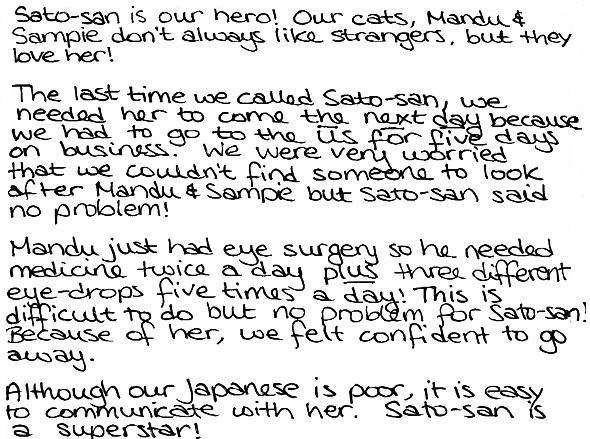 Sato-san is our hero! Our cats, Mandu &
Sampie don't always like strangers, but they
love her!
The last time we called Sato-san, we
needed her to come the next day because
we had to go to the US for five days
on business. We were very worried
that we couldn't find someone to look
after Mandu & Sampie but Sato-san said
no problem!
Mandu just had eye surgery so he needed
medicine twice a day plus three different
eye-drops five times a day! This is
difficult to do but no problem for Sato-san!
Because of her, we felt confident to go
away.
Although our Japanese is poor, it is easy
to communicate with her. Sato-san is
a superstar!